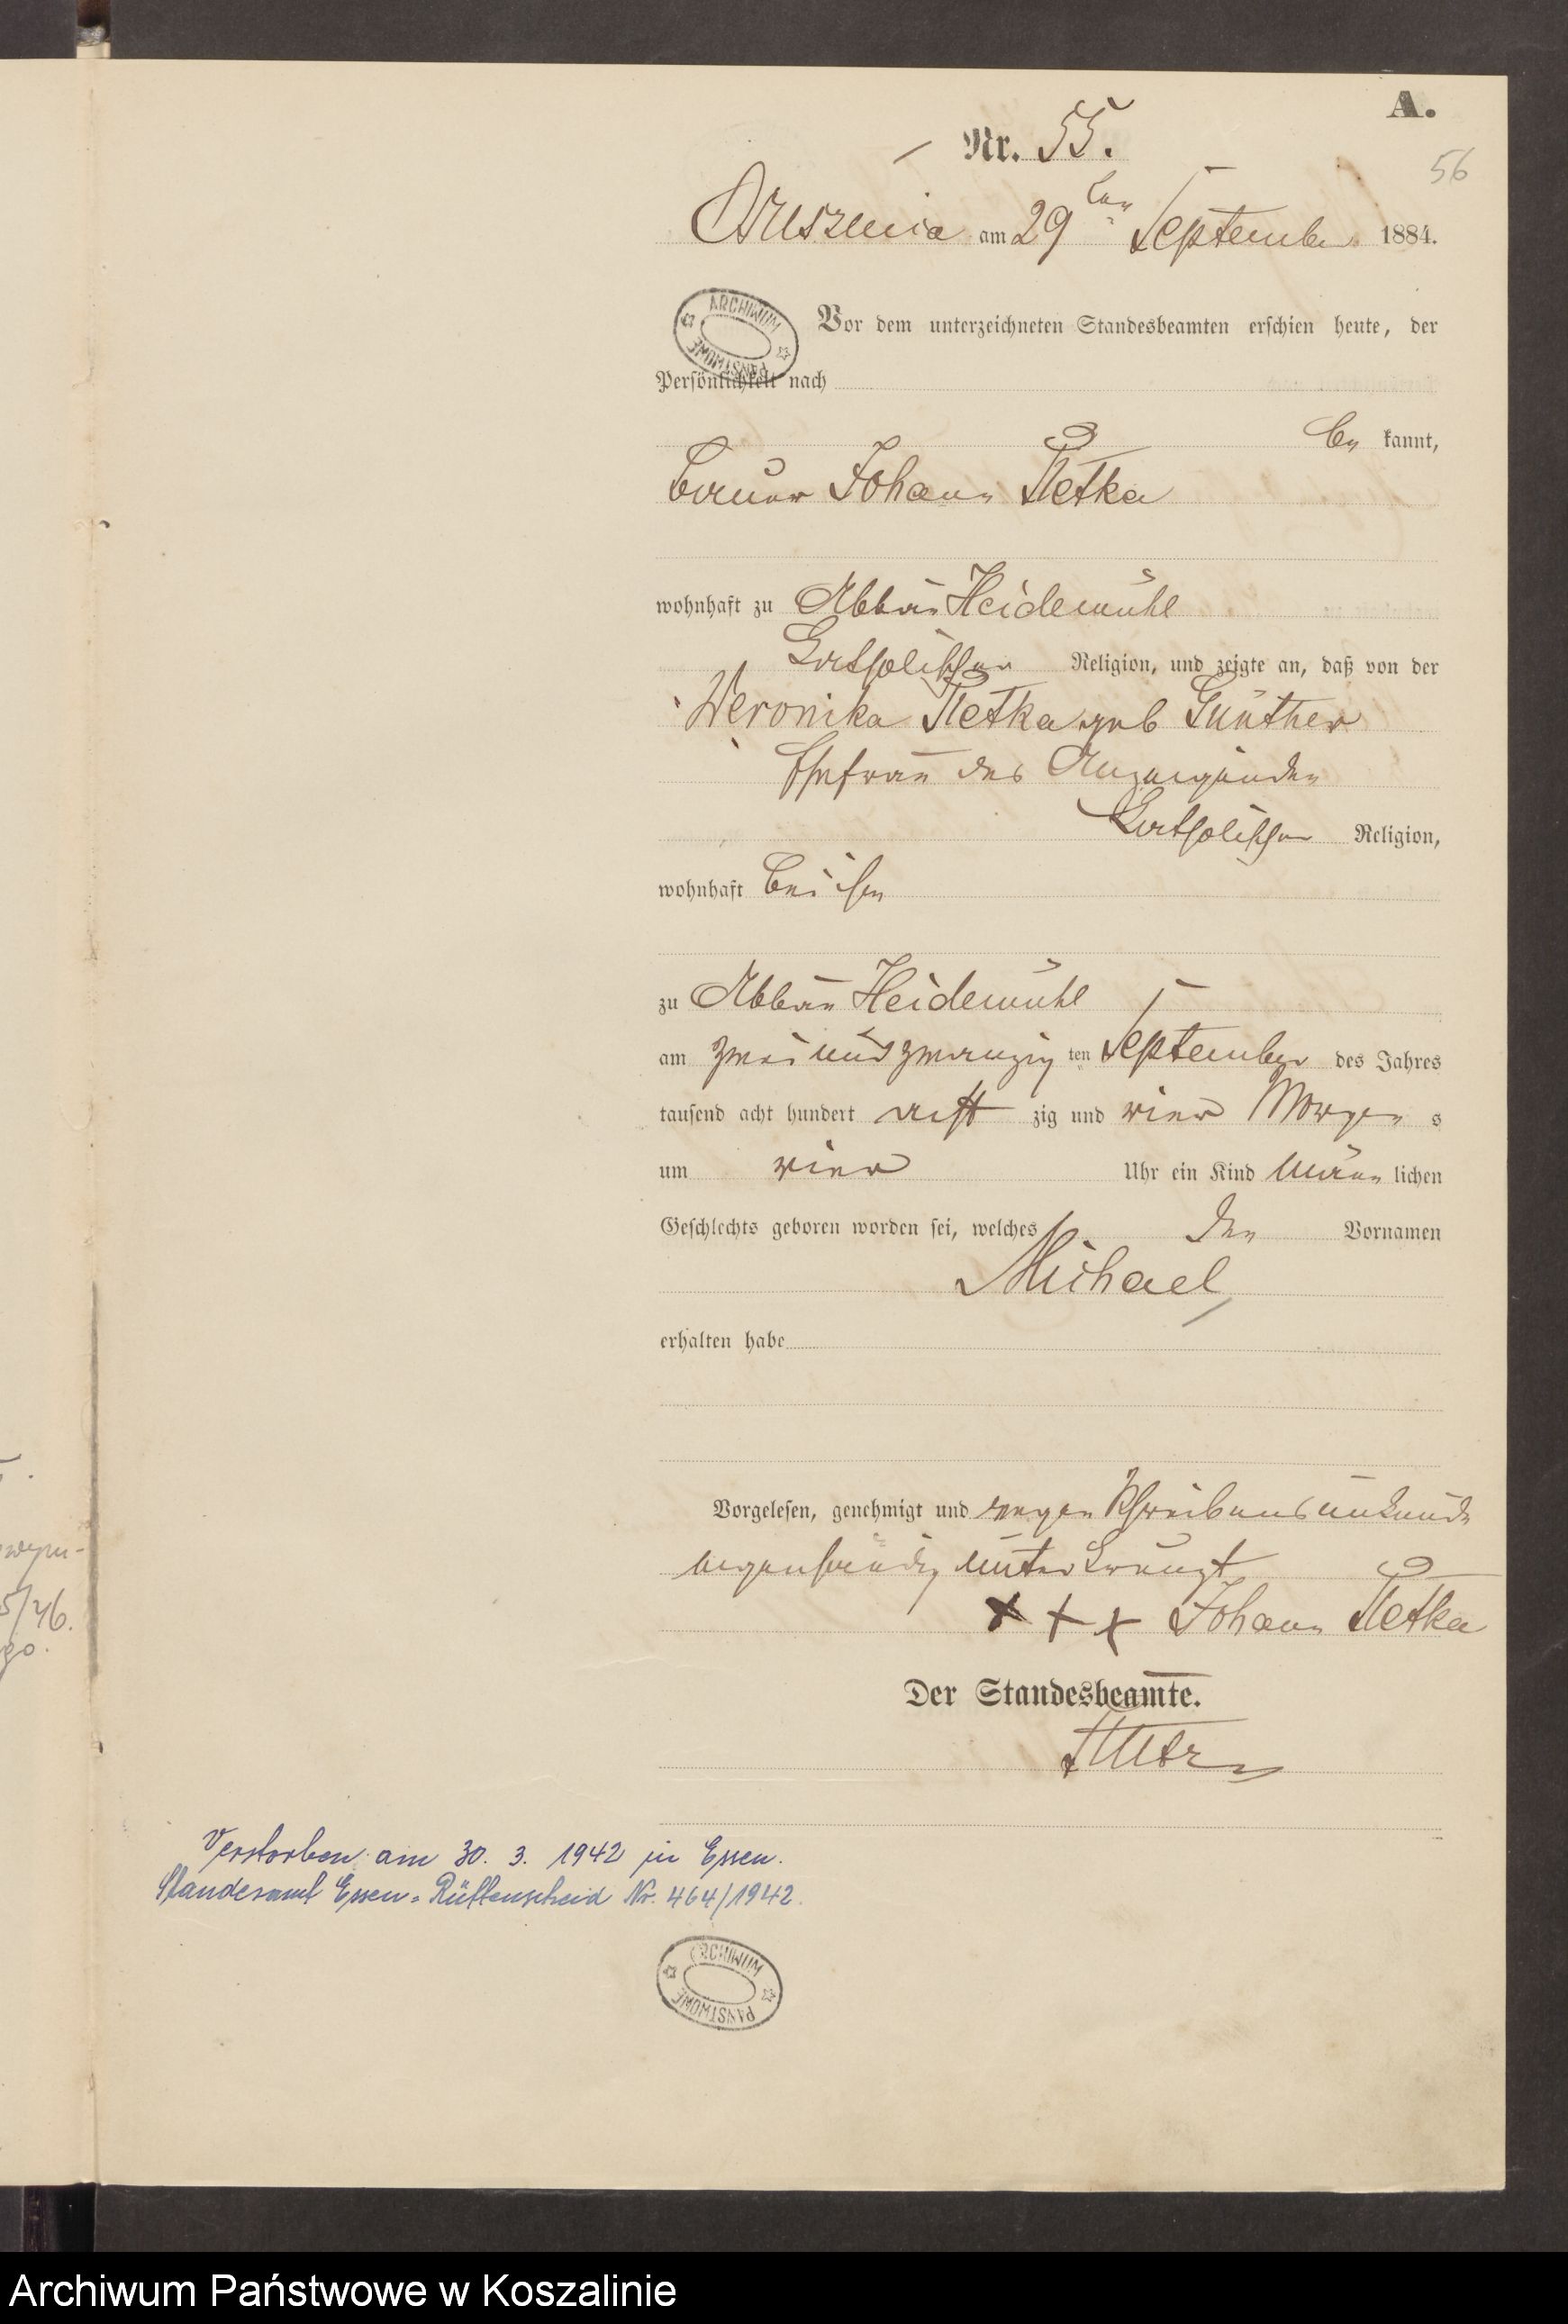 A.
Nr. 55.
56
am 29ten September 1884.
ARCHIWUM PAŃSTWOWE
Vor dem unterzeichneten Standesbeamten erschien heute, der
Persönlichkeit nach
be kannt,
Bauer Johann
wohnhaft zu Abbau Heidemühl
katholischer Religion, und zeigte an, daß von der
Weronika geb Günther
Ehefrau des Anzeigenden
katholischer Religion,
wohnhaft bei ihm
zu Abbau Heidemühl
am zwei und zwanzig ten September des Jahres
tausend acht hundert acht zig und vier Morgen s
um vier Uhr ein Kind männ lichen
Geschlechts geboren worden sei, welches den Vornamen
Michael
erhalten habe
Vorgelesen, genehmigt und wegen Schreibensunkunde
eigenhändig unterkreuzt
+ + + Johann
Der Standesbeamte.
Verstorben am 30. 3. 1942 in Essen.
Standesamt Essen-Rüttenscheid Nr. 464/1942.
ARCHIWUM PAŃSTWOWE
5/46.
Archiwum Państwowe w Koszalinie